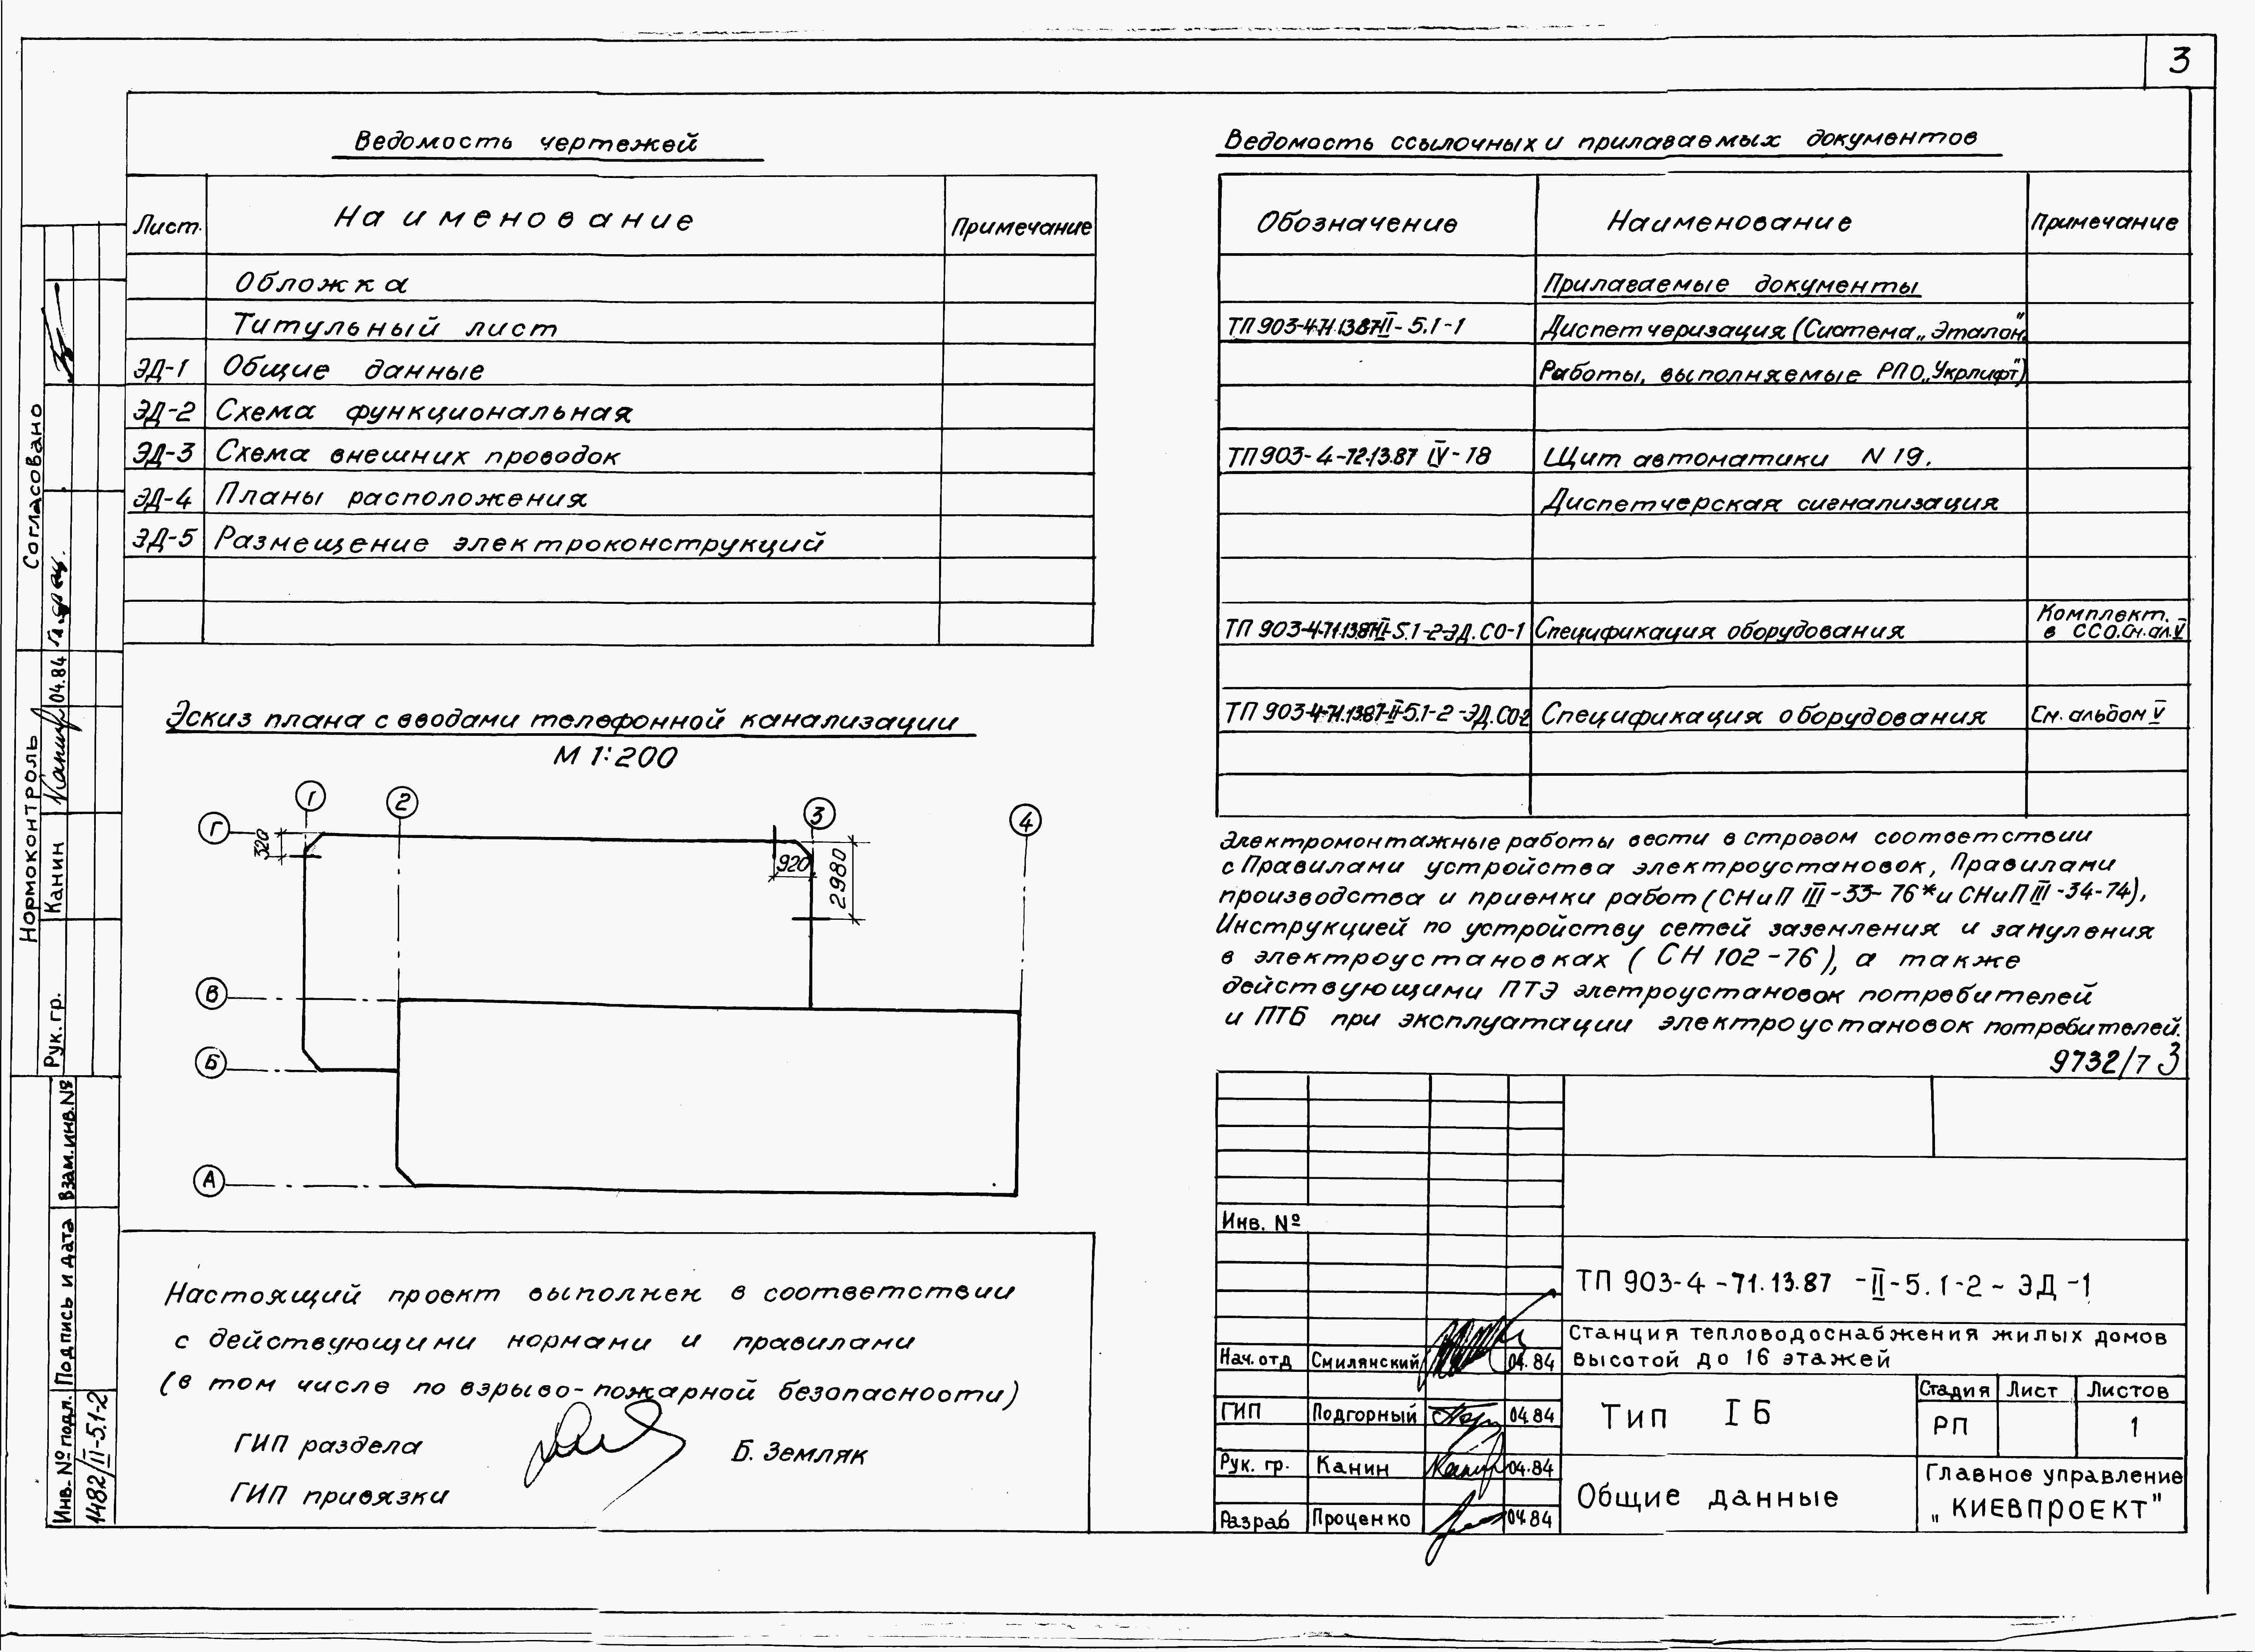 3
Ведомость чертежей
Лист.
Наименование
Примечание
Обложка
Титульный лист
ЭД-1 Общие данные
ЭД-2 Схема функциональная
ЭД-3 Схема внешних проводок
ЭД-4 Планы расположения
ЭД-5 Размещение электроконструкций
Ведомость ссылочных и прилагаемых документов
Обозначение
Наименование
Примечание
Прилагаемые документы
ТП 903-4-71.13.87-II-5.1-1 Диспетчеризация (Система „Эталон."
Работы, выполняемые РПО „Укрлифт")
ТП 903-4-72.13.87 IV-18 Щит автоматики N 19.
Диспетчерская сигнализация
ТП 903-4-71.13.87-II-5.1-2-ЭД.СО-1 Спецификация оборудования Комплект.
в ССО.См.ал.V
ТП 903-4-71.13.87-II-5.1-2-ЭД.СО-2 Спецификация оборудования См. альбом V
Эскиз плана с вводами телефонной канализации
М 1:200
1
2
3
4
Г
В
Б
А
320
920
2980
Электромонтажные работы вести в строгом соответствии
с Правилами устройства электроустановок, Правилами
производства и приемки работ (СНиП III-33-76* и СНиП III-34-74),
Инструкцией по устройству сетей заземления и зануления
в электроустановках (СН 102-76), а также
действующими ПТЭ элетроустановок потребителей
и ПТБ при эксплуатации электроустановок потребителей.
9732/7 3
Настоящий проект выполнен в соответствии
с действующими нормами и правилами
(в том числе по взрыво-пожарной безопасности)
ГИП раздела
Б. Земляк
ГИП привязки
Инв. №
ТП 903-4-71.13.87-II-5.1-2-ЭД-1
Станция тепловодоснабжения жилых домов
высотой до 16 этажей
Нач.отд Смилянский 04.84
ГИП Подгорный 04.84
Рук. гр. Канин 04.84
Разраб Проценко 04.84
Тип IБ
Стадия Лист Листов
РП 1
Общие данные
Главное управление
„КИЕВПРОЕКТ"
Согласовано
Нормоконтроль
Рук. гр. Канин 04.84
Взам.инв.№
Подпись и дата
Инв.№ подл.
1482/II-5.1-2